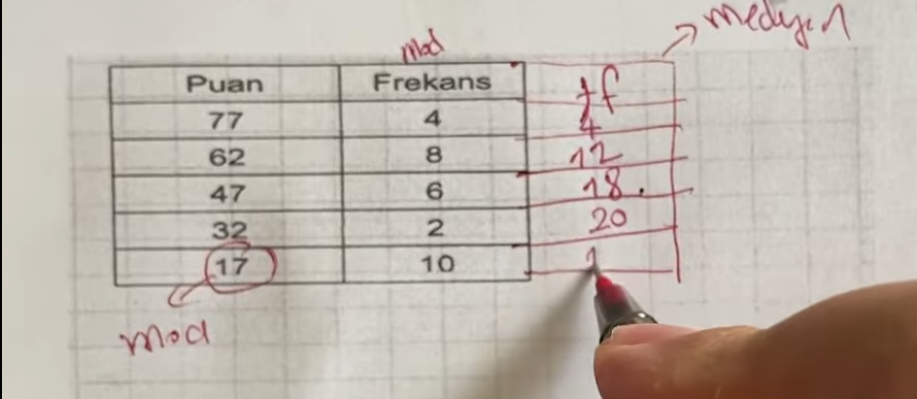 medyan
mod
Puan Frekans tf
77 4 4
62 8 12
47 6 18.
32 2 20
17 10
mod